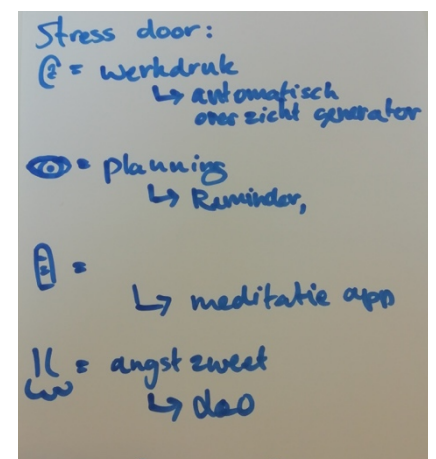 Stress door:
= werkdruk
↳ automatisch
overzicht generator
= planning
↳ Reminder,
=
↳ meditatie app
= angstzweet
↳ deo